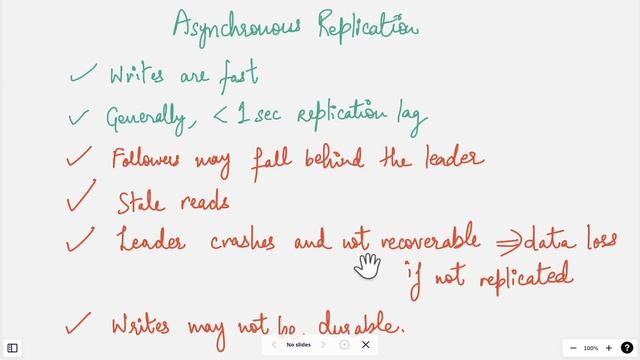 Asynchronous Replication
Writes are fast
Generally, < 1 sec replication lag
Followers may fall behind the leader
Stale reads
Leader crashes and not recoverable ⇒ data loss
if not replicated
Writes may not be durable.
No slides
100%